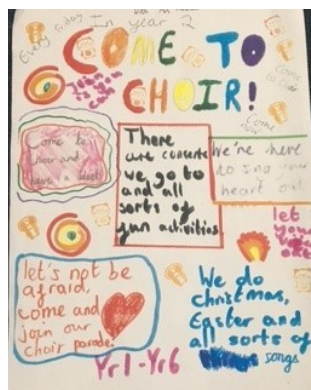 Every Friday
In year 2
COME TO
CHOIR!
Come
to choir
Come
now
Come to
choir and
have a blast
There
are concerts
we go to
and all
sorts of
fun activities
We're here
to sing your
heart out
let
your
let's not be
afraid,
come and
join our
choir parade!
We do
christmas,
Easter and
all sorts of
songs
Yr1-Yr6